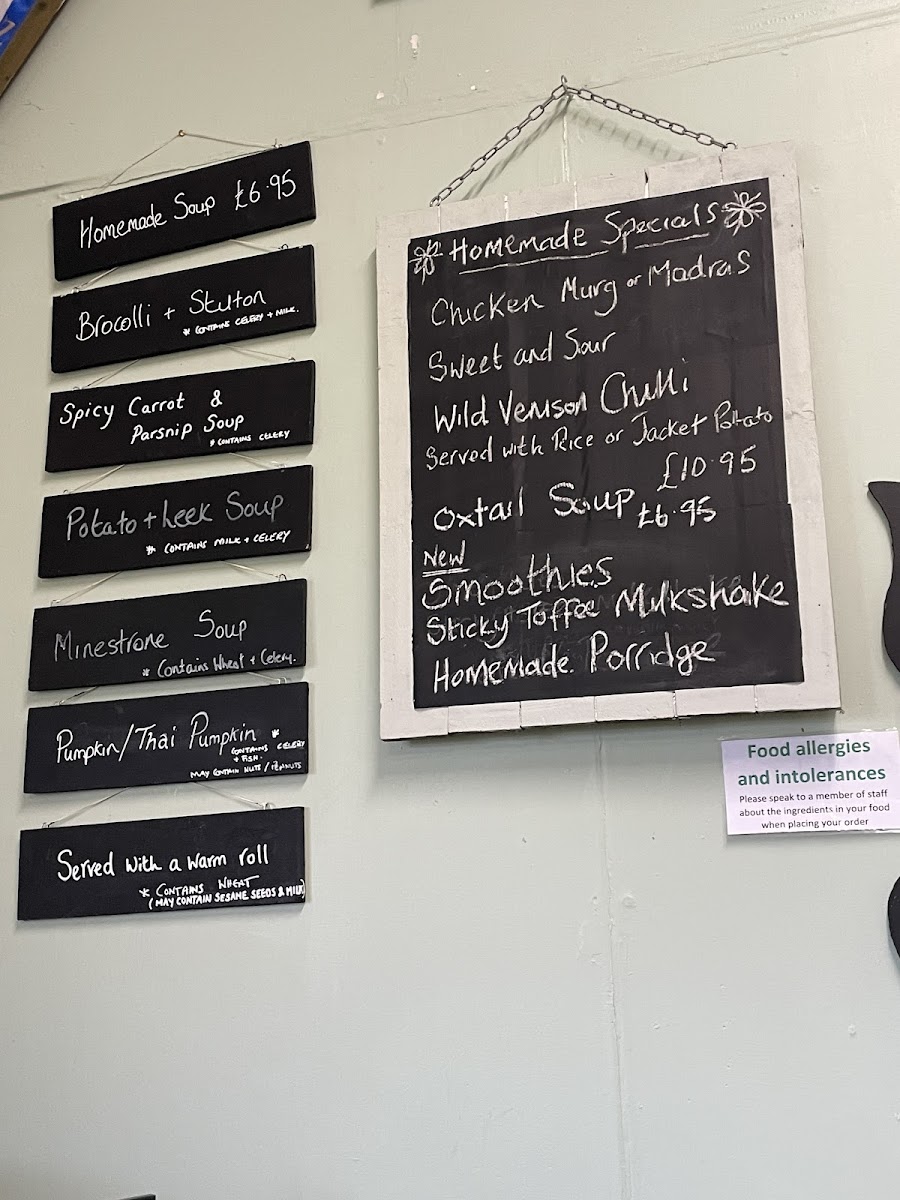 Homemade Soup £6.95
Brocolli + Stilton
* CONTAINS CELERY + MILK.
Spicy Carrot &
Parsnip Soup
* CONTAINS CELERY
Potato + Leek Soup
* CONTAINS MILK + CELERY
Minestrone Soup
* Contains Wheat + Celery.
Pumpkin/Thai Pumpkin *
CONTAINS CELERY
+ FISH.
MAY CONTAIN NUTS / PEANUTS
Served with a warm roll
* CONTAINS WHEAT
(MAY CONTAIN SESAME SEEDS & MILK)
Homemade Specials
Chicken Murg or Madras
Sweet and Sour
Wild Venison Chilli
Served with Rice or Jacket Potato
£10.95
Oxtail Soup £6.95
New
Smoothies
Sticky Toffee Milkshake
Homemade Porridge
Food allergies
and intolerances
Please speak to a member of staff
about the ingredients in your food
when placing your order